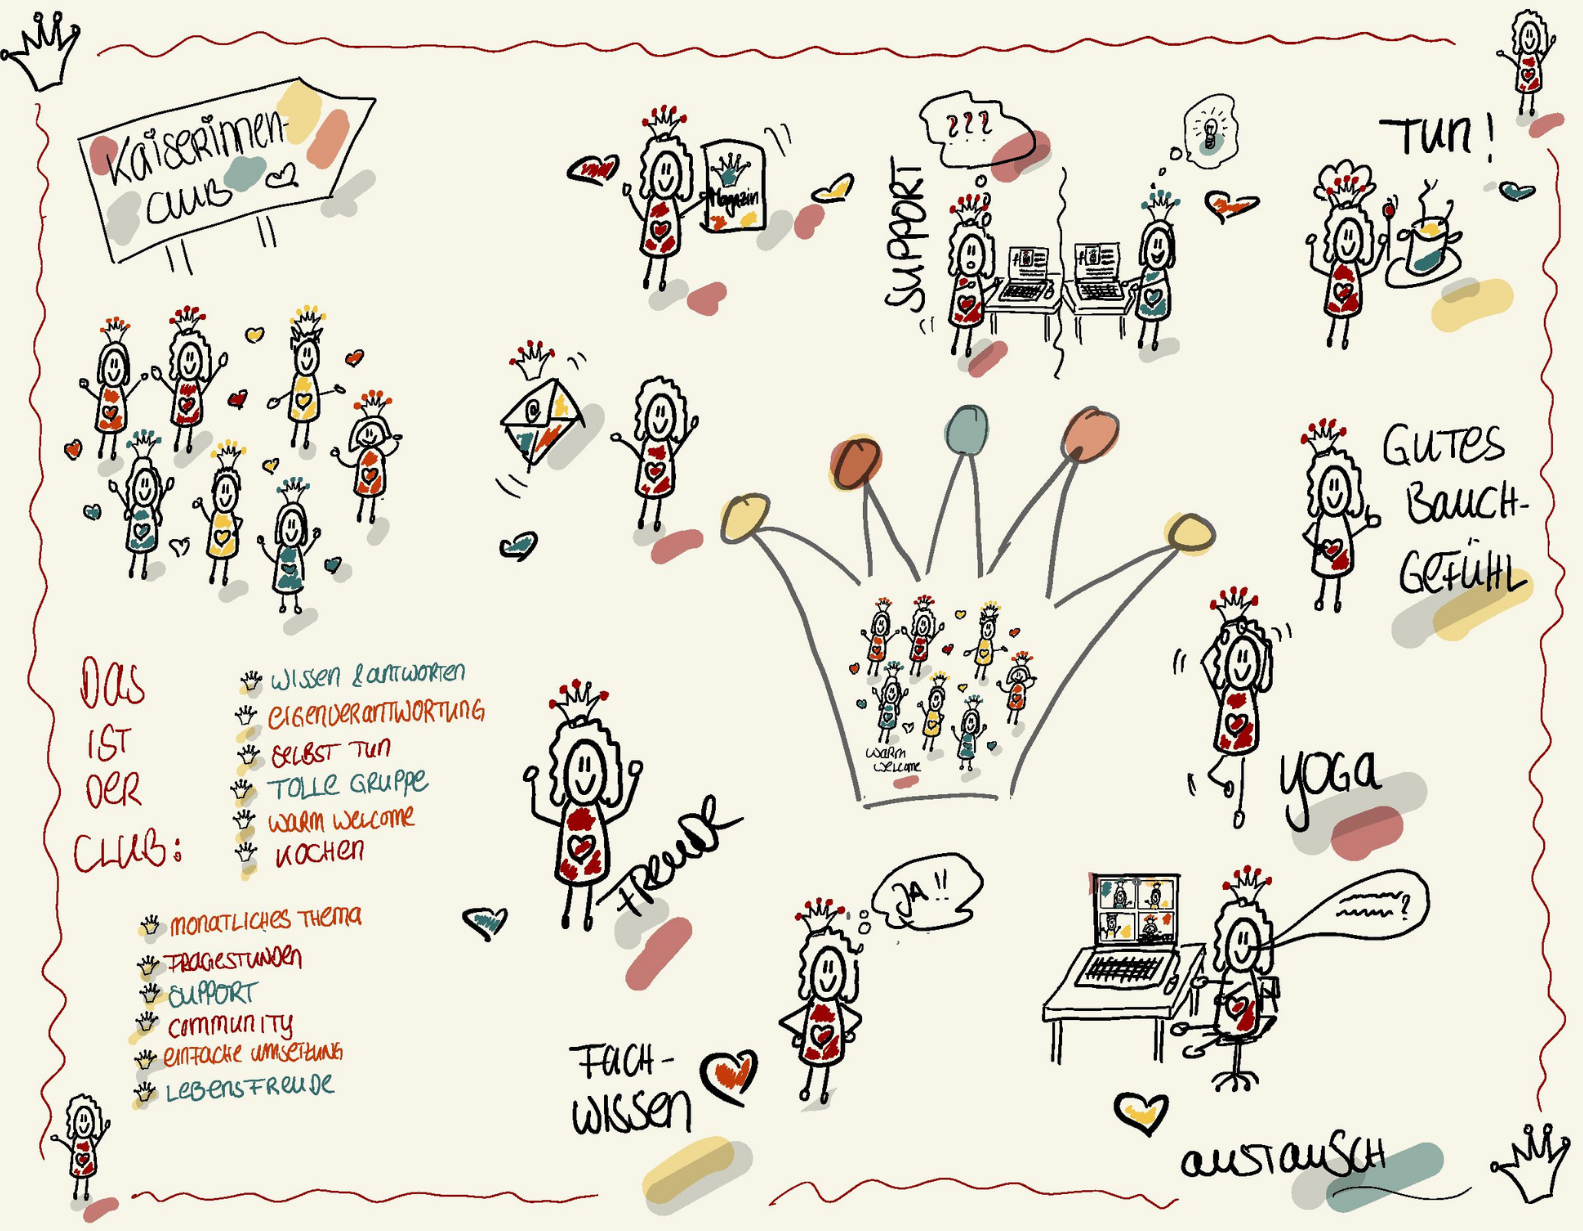 Kaiserinnen-
CLUB
Magazin
???
SUPPORT
TUN!
@
GUTES
BAUCH-
GEFÜHL
DAS
IST
DER
CLUB:
WISSEN & ANTWORTEN
EIGENVERANTWORTUNG
SELBST TUN
TOLLE GRUPPE
WARM WELCOME
KOCHEN
WARM
WELCOME
YOGA
FREUDE
JA!!
?
MONATLICHES THEMA
FRAGESTUNDEN
SUPPORT
COMMUNITY
EINFACHE UMSETZUNG
LEBENSFREUDE
FACH-
WISSEN
AUSTAUSCH